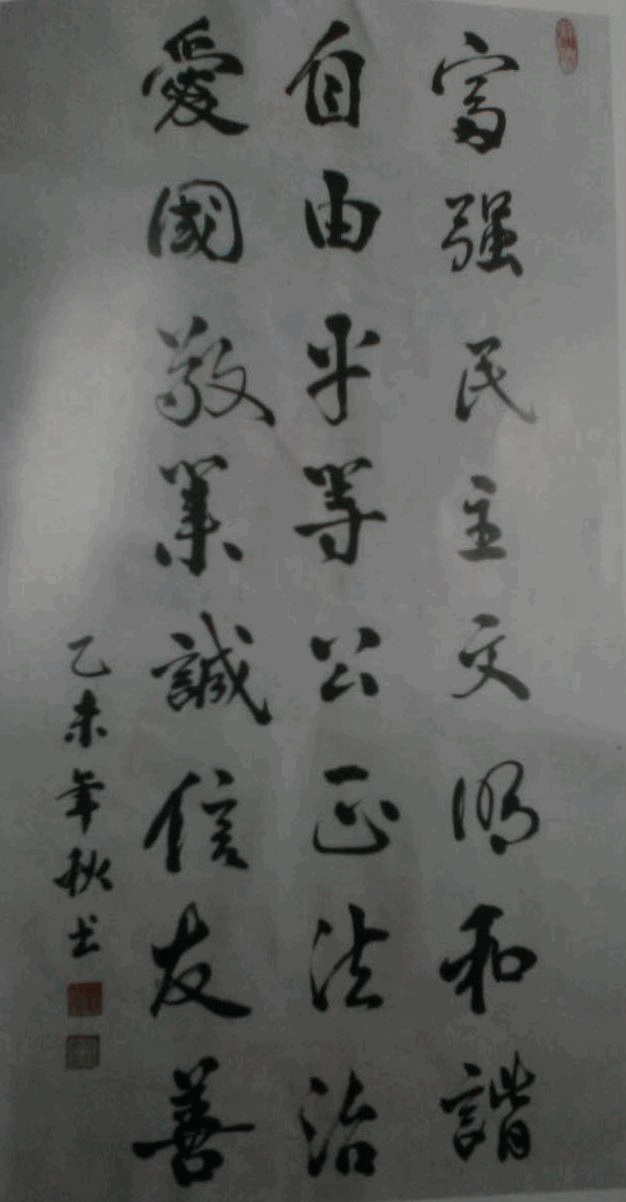 富强民主文明和諧
自由平等公正法治
愛國敬業誠信友善
乙未年秋书